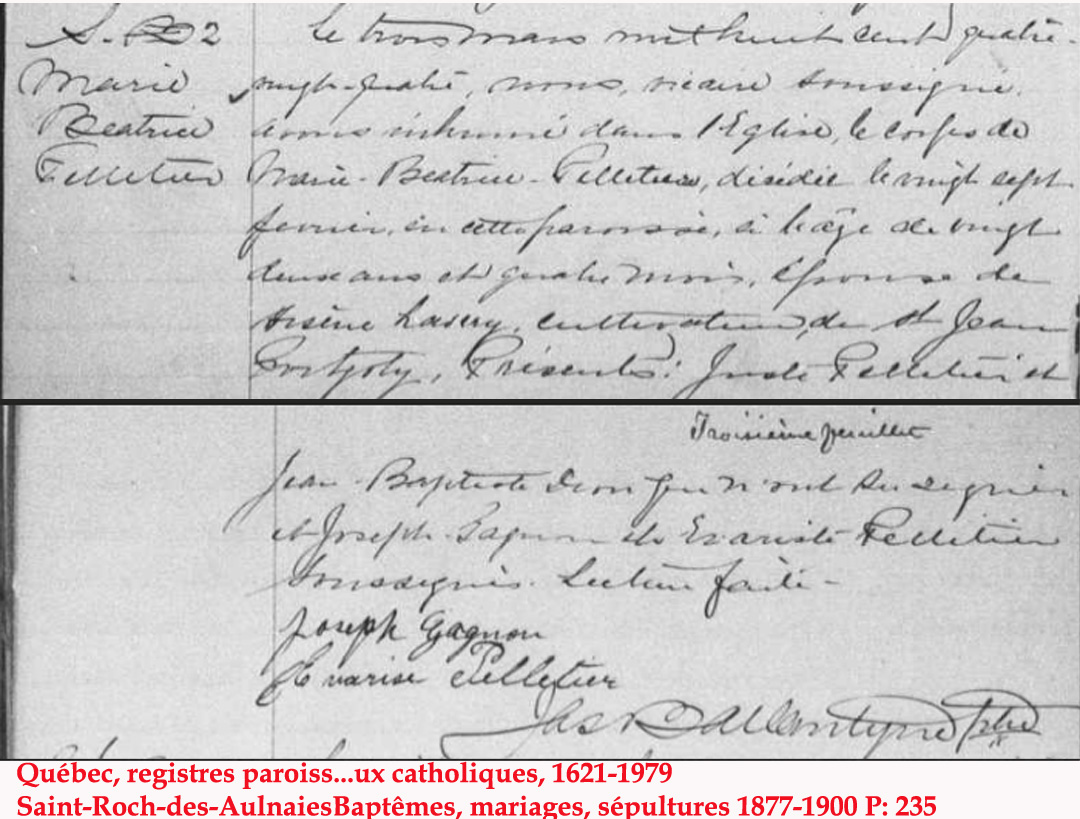 S. 2
Marie
Beatrice
Pelletier
Le trois mars mil huit cent quatre-
vingt-quatre, nous, vicaire soussigné,
avons inhumé dans l'Eglise, le corps de
Marie-Beatrice-Pelletier, décédée le vingt sept
fevrier, en cette paroisse, à l'âge de vingt
deux ans et quatre mois, épouse de
Arsène, cultivateur, de St Jean
Port Joly, Présents: Juste Pelletier et
Troisième feuillet
Jean Baptiste Dion qui n'ont su signer
et Joseph Gagnon et Evariste Pelletier
soussignés. Lecture faite-
Joseph Gagnon
Evarise Pelletier
Jas Ballantyne Ptre
Québec, registres paroiss...ux catholiques, 1621-1979
Saint-Roch-des-AulnaiesBaptêmes, mariages, sépultures 1877-1900 P: 235